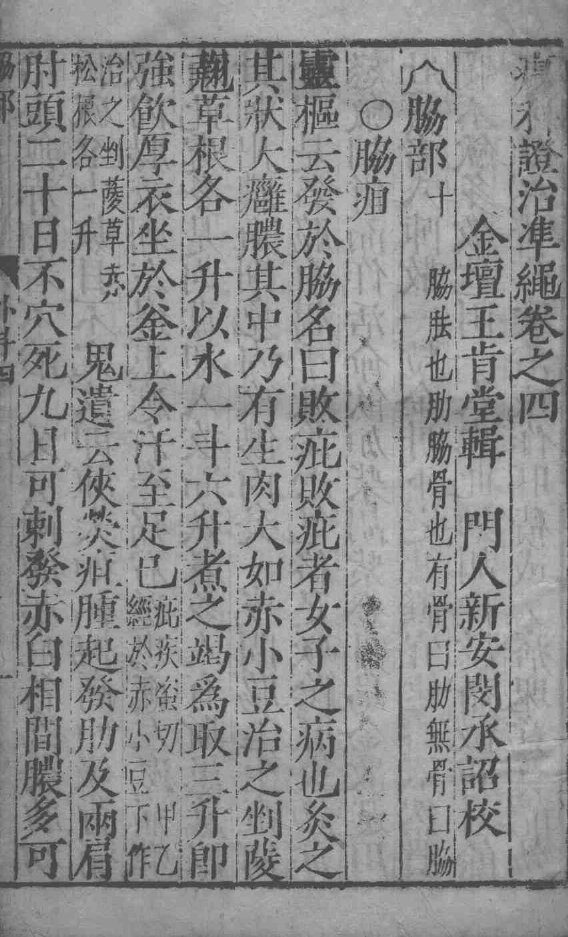 瘍科證治準繩卷之四
金壇王肯堂輯 門人新安閔承詔校
脇部十 脇胠也肋脇骨也有骨曰肋無骨曰脇
○脇疽
靈樞云發於脇名曰敗疵敗疵者女子之病也灸之
其狀大癰膿其中乃有生肉大如赤小豆治之剉䔖
翹草根各一升以水一斗六升煮之竭爲取三升卽
強飲厚衣坐於釜上令汗至足已 疵疾 切 甲乙
經於赤小豆下作
治之剉䔖草赤
松根各一升 鬼遺云俠熒疽腫起發肋及兩肩
肘頭二十日不穴死九日可刺發赤白相間膿多可
脇部
外科四
一